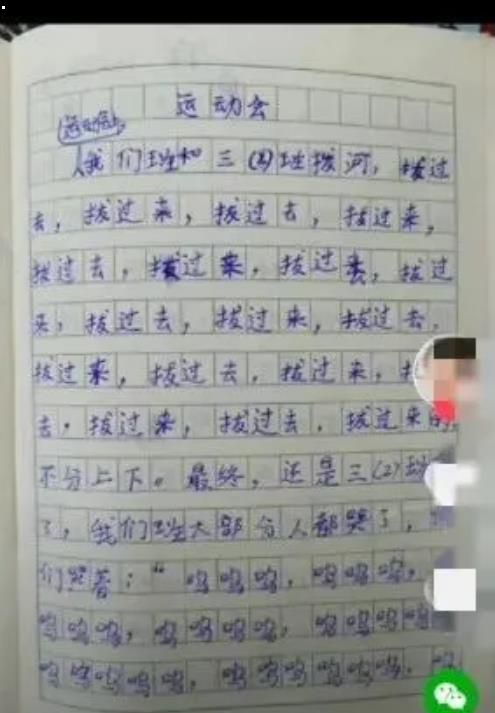 运动会
运动会上,
我们班和三(2)班拨河，拔过
去，拔过来，拔过去，拔过来，
拔过去，拔过来，拔过来，拔过
来，拔过去，拔过来，拔过去，
拔过来，拔过去，拔过来，
去，拔过来，拔过去，拔过来的，
不分上下。最终，还是三(2)班
了，我们班大部分人都哭了，
们哭着："呜呜呜，呜呜呜，
呜呜呜，呜呜呜呜，呜呜呜呜
呜呜呜呜呜，呜呜呜呜呜呜，呜